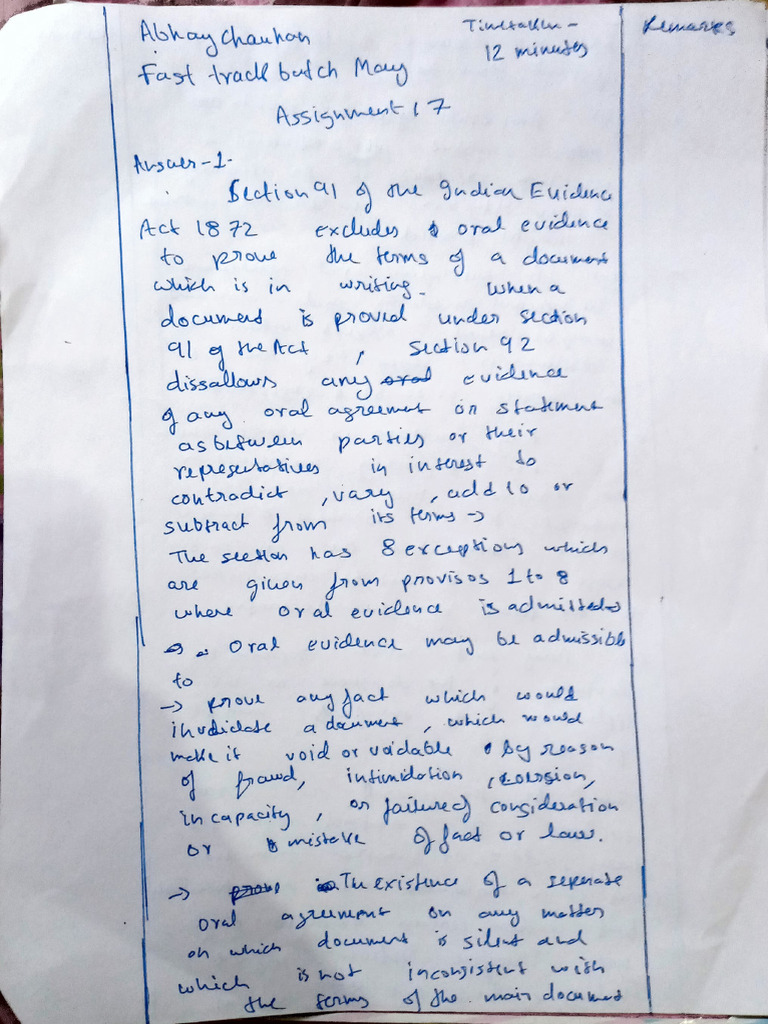 Abhay Chauhan
Timetaken -
12 minutes
Remarks
Fast track batch May
Assignment 17
Answer - 1 -
Section 91 of the Indian Evidence
Act 1872 excludes oral evidence
to prove the terms of a document
which is in writing. When a
document is proved under section
91 of the Act, section 92
dissallows any oral evidence
of any oral agreement or statement
as between parties or their
representatives in interest to
contradict, vary, add to or
subtract from its terms →
The section has 8 exceptions which
are given from provisos 1 to 8
where oral evidence is admitted →
Oral evidence may be admissible
to
→ prove any fact which would
invalidate a document, which would
make it void or voidable by reason
of fraud, intimidation, coersion,
incapacity, or failure of consideration
or mistake of fact or law.
→ prove The existence of a seperate
oral agreement on any matter
on which document is silent and
which is not inconsistent with
the terms of the main document